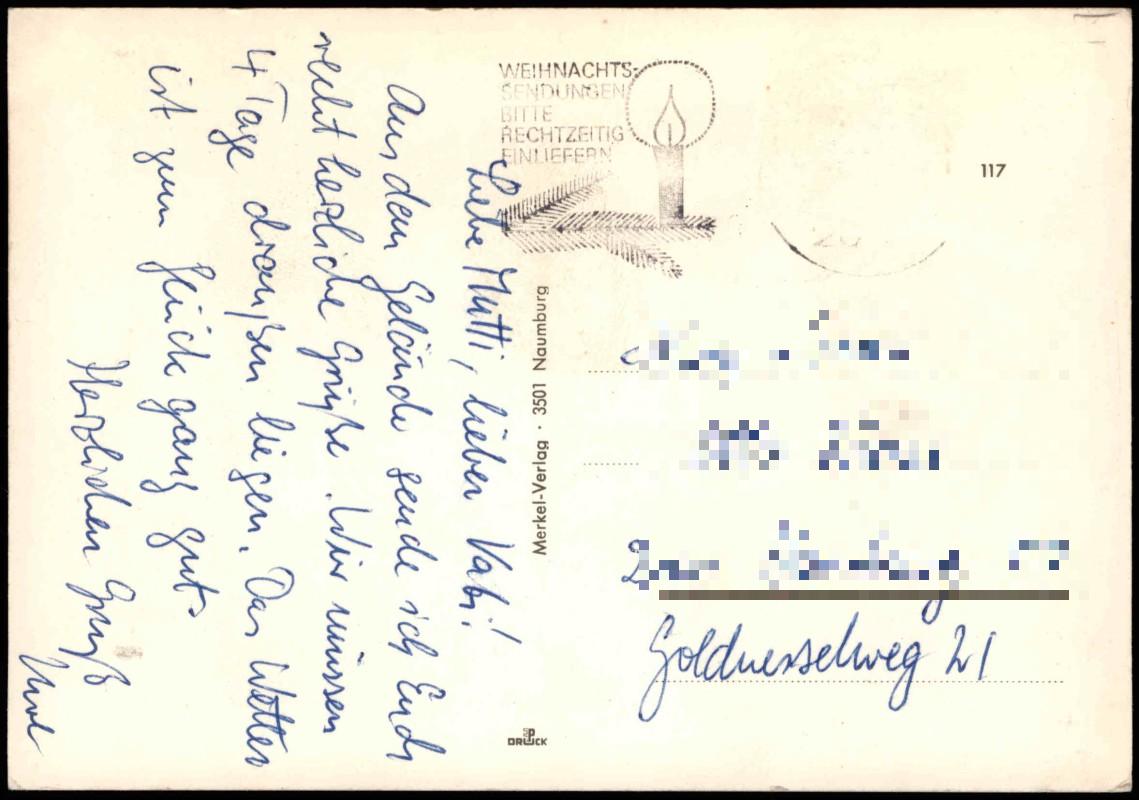 WEIHNACHTS-
SENDUNGEN
BITTE
RECHTZEITIG
EINLIEFERN
117
Liebe Mutti, lieber Vati!
Aus dem Gelände sende ich Euch
recht herzliche Grüße. Wir müssen
4 Tage draußen liegen. Das Wetter
ist zum Glück ganz gut.
Herzlichen Gruß
Merkel-Verlag · 3501 Naumburg
DRUCK
Goldnesselweg 21